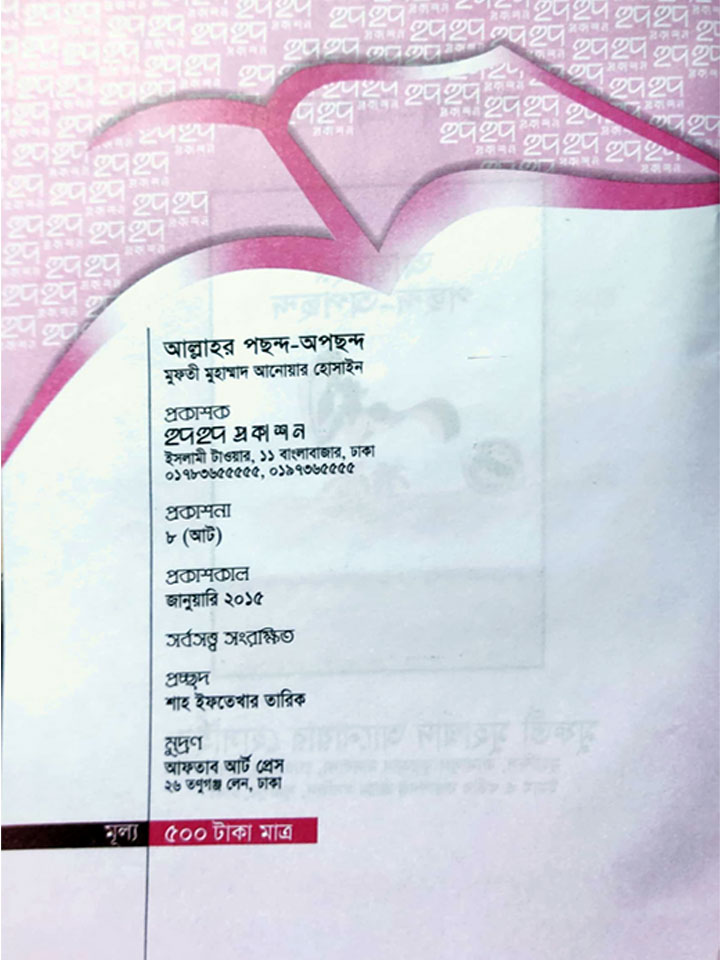 আল্লাহর পছন্দ-অপছন্দ
মুফতী মুহাম্মাদ আনোয়ার হোসাইন
প্রকাশক
হুদহুদ প্রকাশন
ইসলামী টাওয়ার, ১১ বাংলাবাজার, ঢাকা
০১৭৮৩৬৫৫৫৫৫, ০১৯৭৩৬৫৫৫৫৫
প্রকাশনা
৮ (আট)
প্রকাশকাল
জানুয়ারি ২০১৫
সর্বসত্ত্ব সংরক্ষিত
প্রচ্ছদ
শাহ ইফতেখার তারিক
মুদ্রণ
আফতাব আর্ট প্রেস
২৬ তণুগঞ্জ লেন, ঢাকা
মূল্য ৫০০ টাকা মাত্র